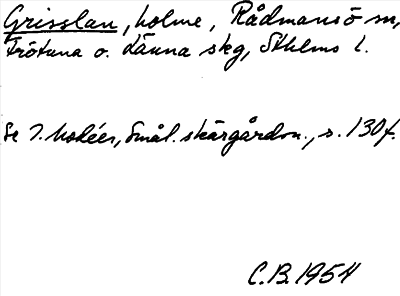 Grisslan, holme, Rådmansö sn,
Frötuna o. Länna skg, Sthlms l.
Se I. Modéer, Smål. skärgårdsn., s. 130f.
C.B. 1954